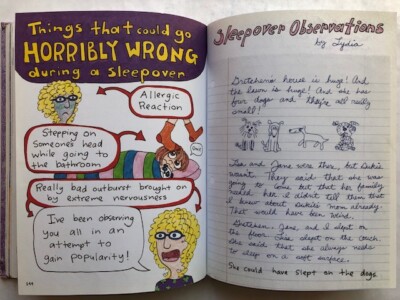 Things that could go
HORRIBLY WRONG
during a sleepover
Allergic
Reaction
Stepping on
Someone's head
while going to
the bathroom
Really bad outburst brought on
by extreme nervousness
I've been observing
you all in an
attempt to
gain popularity!
144
Sleepover Observations
by Lydia
Gretchen's house is huge! And
the lawn is huge! And she has
four dogs and they're all really
small!
Lisa and Jane were there, but
wasn't. They said that she was
going to come but that her family
needed her. I didn't tell them that
I knew about mom already.
That would have been weird.
Gretchen, Jane, and I slept on
the floor. Lisa slept on the couch.
She said that she always needs
to sleep on a soft surface.
She could have slept on the dogs.